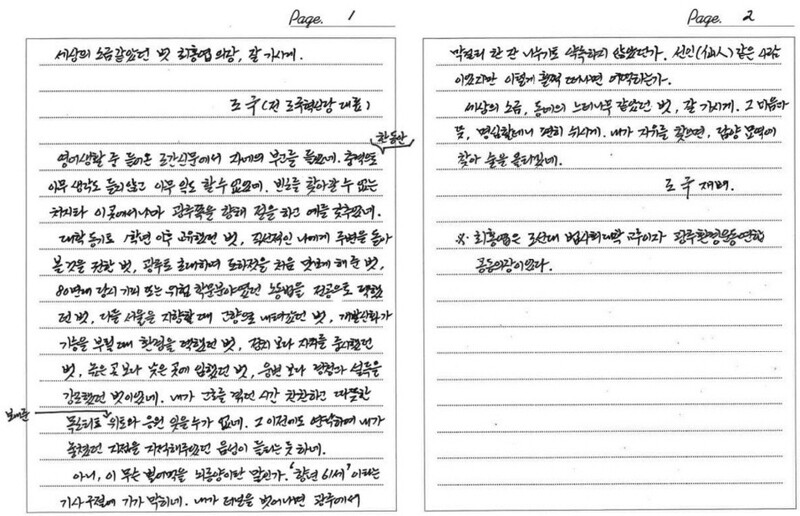 Page. 1
세상의 소금같았던 벗 최홍엽 의장, 잘 가시게.
조 국 (전 조국혁신당 대표)
영어생활 중 들어온 조간신문에서 자네의 부고를 들었네. 충격으로 한동안
아무 생각도 들지 않고 아무 일도 할 수 없었네. 빈소를 찾아갈 수 없는
처지라 이곳에서나마 광주쪽을 향해 절을 하고 예를 갖추었네.
대학 동기로 1학년 이후 교유했던 벗, 직선적인 나에게 주변을 돌아
볼 것을 권한 벗, 광주로 초대하여 보해젓을 처음 맛보게 해 준 벗,
80년대 당시 기피 또는 위험 학문분야였던 노동법을 전공으로 택했
던 벗, 다들 서울을 지향할 때 고향으로 내려갔던 벗, 개발신화가
기승을 부릴 때 환경을 택했던 벗, 정치 보다 자치를 중시했던
벗, 높은 곳 보다 낮은 곳에 임했던 벗, 웅변 보다 경청과 설득을
강조했던 벗이었네. 내가 고초를 겪던 시간 잔잔하고 따뜻한
목소리로 보내준 위로와 응원 잊을 수가 없네. 그 이전에도 연락하여 내가
놓쳤던 지점을 지적해주었던 음성이 들리는 듯 하네.
아니, 이 무슨 벼락맞을 뇌종양이란 말인가. '향년 61세' 이라는
기사 구절에 기가 막히네. 내가 터널을 벗어나면 광주에서
Page. 2
막걸리 한 잔 나누기로 약속하지 않았던가. 선인(仙人) 같은 사람
이었지만 이렇게 훌쩍 떠나면 어떡하는가.
세상의 소금, 동네의 느티나무 같았던 벗, 잘 가시게. 그 마음과
뜻, 명심할테니 편히 쉬시게. 내가 자유를 찾으면, 담양 묘역에
찾아 술을 올리겠네.
조 국 재배.
※. 최홍엽은 조선대 법사회대학 교수이자 광주환경운동연합
공동의장이었다.